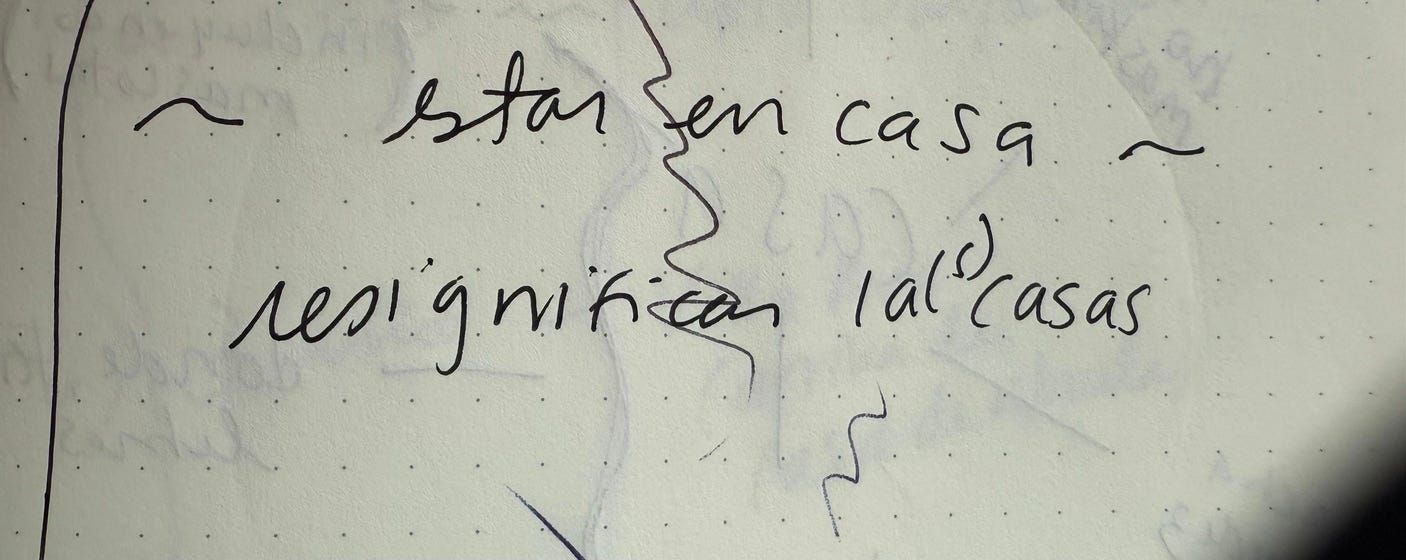 ~ estar en casa ~
resignificar la(s) casas